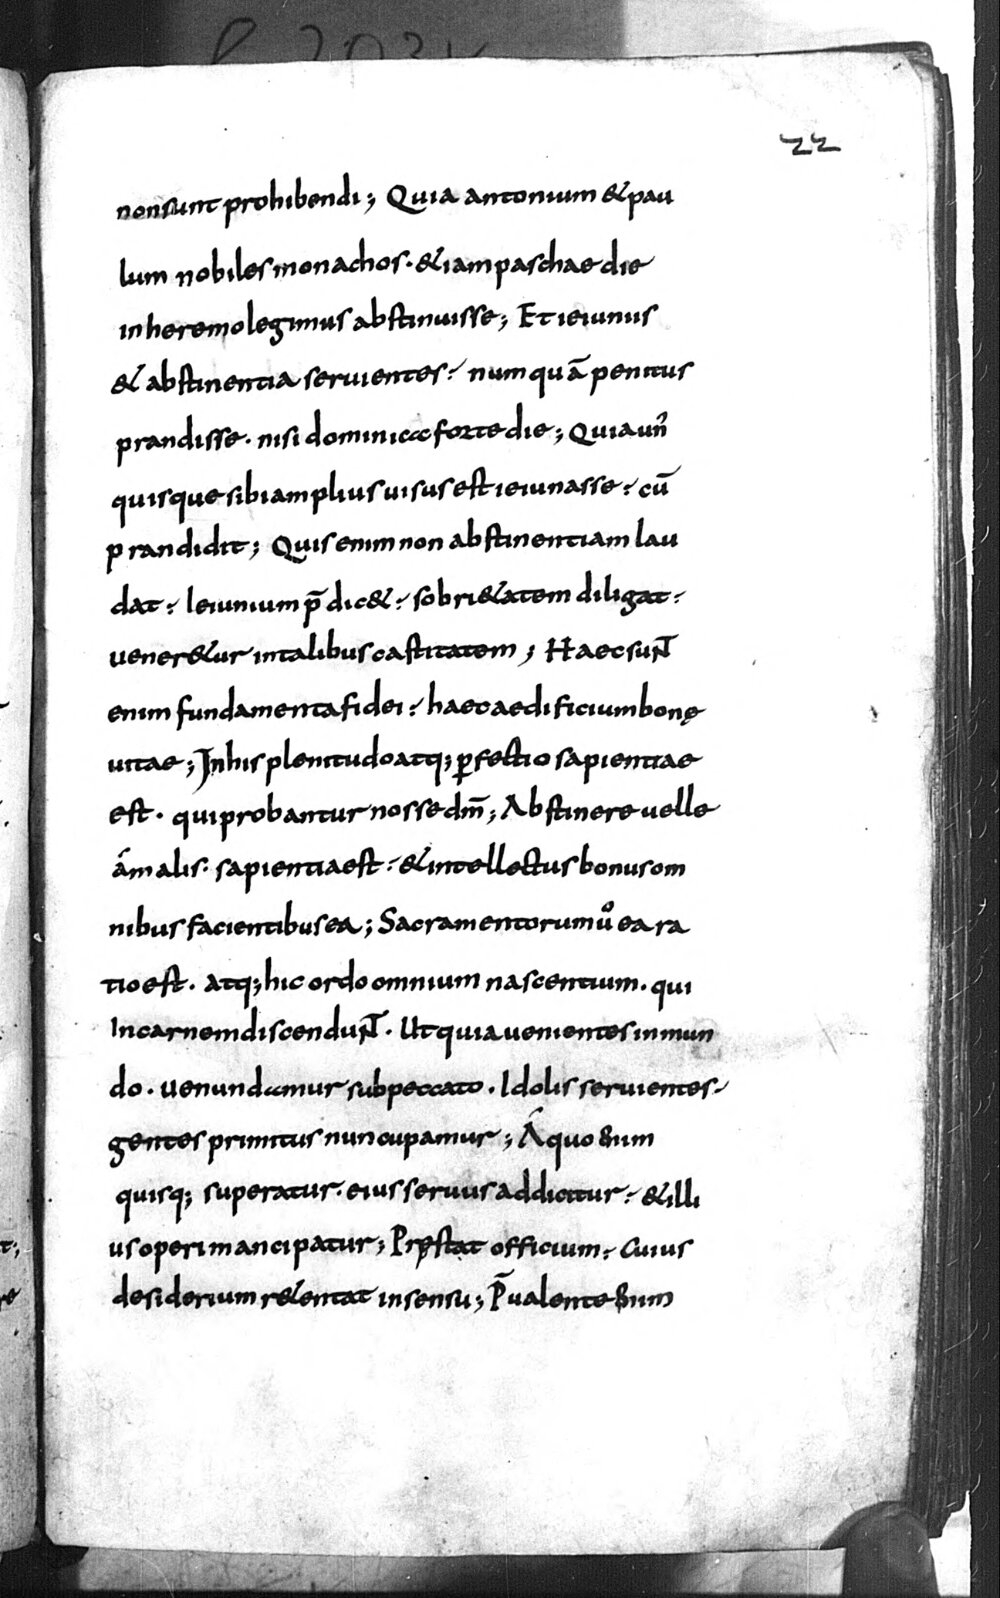 22
non sunt prohibendi; Quia antonium & pau
lum nobiles monachos· & iam paschae die
in heremo legimus abstinuisse; Et ieiuniis
& abstinentia seruientes· numquā penitus
prandisse· nisi dominico forte die; Quia un̄
quisque sibi amplius uisus est ieiunasse· cū
prandidit; Quis enim non abstinentiam lau
dat· Ieiunium p̄dic&· sobri&atem diligat·
uener&ur in talibus castitatem; Haec sunt
enim fundamenta fidei· haec aedificium bonę
uitae; In his plenitudo atq; ꝑfectio sapientiae
est· qui probantur nosse dm̄; Abstinere uelle
á malis· sapientia est· & intellectus bonus om
nibus facientibus ea; Sacramentorum uͦ ea ra
tio est· atq; hic ordo omnium nascentium· qui
In carnem discendunt· Ut quia uenientes in mun
do· uenundamur sub peccato· Idolis seruientes·
gentes primitus nuncupamur; Á quo enim
quisq; superatur· eius seruus addicitur· & illi
us operi mancipatur; Pręstat officium· cuius
desiderium r&entat in sensu; P̄ualente enim